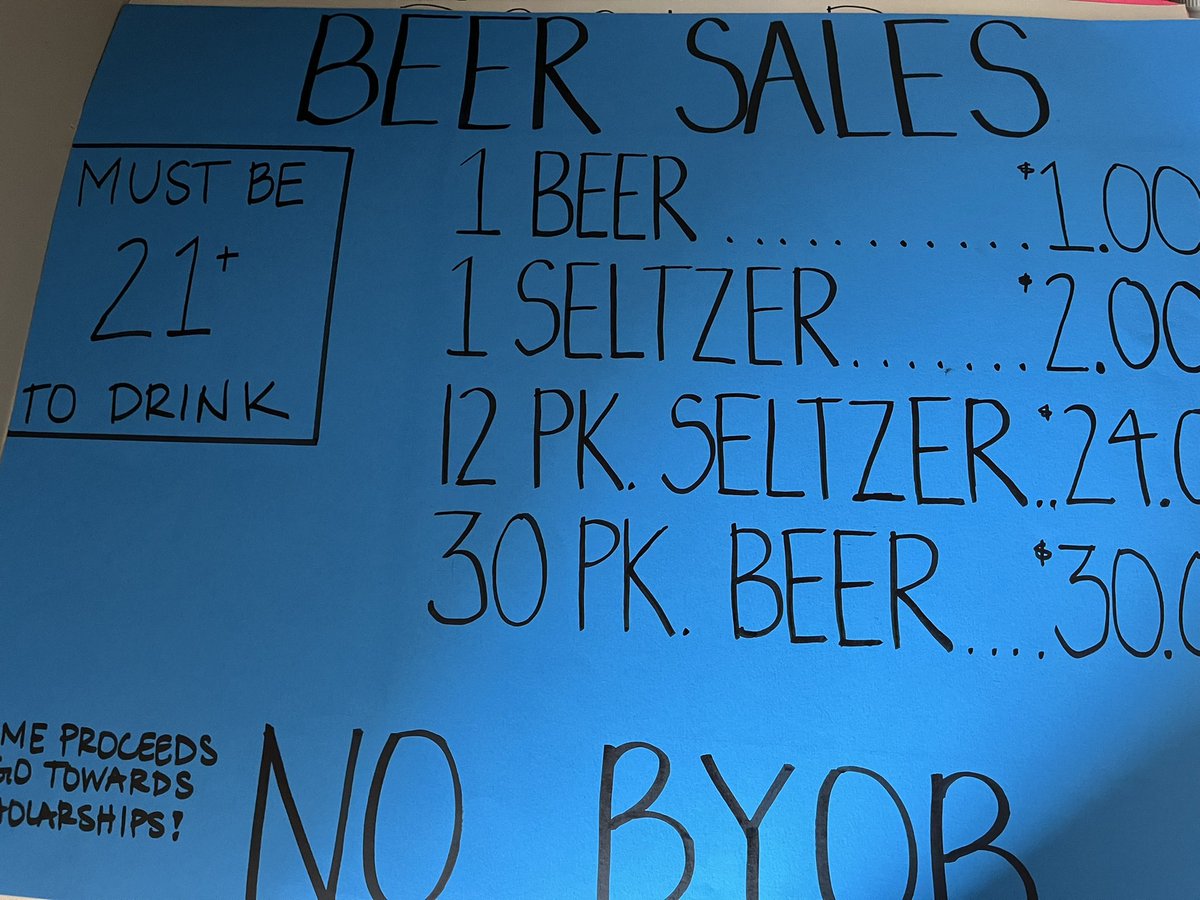 BEER SALES
MUST BE
21+
TO DRINK
1 BEER ............ $1.00
1 SELTZER ........ $2.00
12 PK. SELTZER .. $24.0
30 PK. BEER .... $30.0
ME PROCEEDS
GO TOWARDS
HOLARSHIPS!
NO BYOB